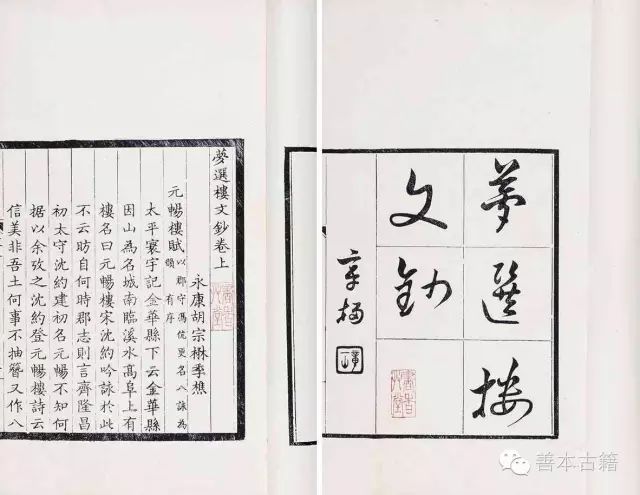 夢選樓
文鈔
章梫
夢選樓文鈔卷上
永康胡宗楙季樵
元暢樓賦以郡守馮伉更名八詠為韻有序
太平寰宇記金華縣下云金華縣
因山為名城南臨溪水高阜上有
樓名曰元暢樓宋沈約吟詠於此
不云昉自何時郡志則言齊隆昌
初太守沈約建初名元暢不知何
据以余攷之沈約登元暢樓詩云
信美非吾土何事不抽簪又作八
善本古籍